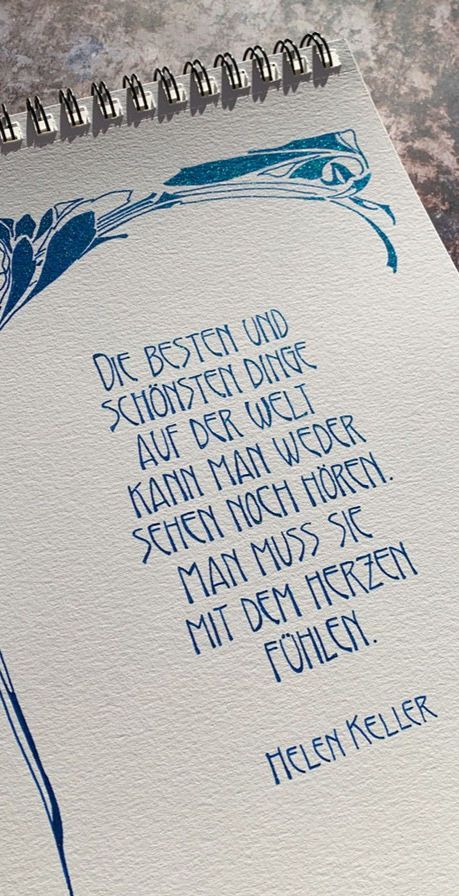 Die besten und
schönsten Dinge
auf der Welt
kann man weder
sehen noch hören.
Man muss sie
mit dem Herzen
fühlen.
Helen Keller